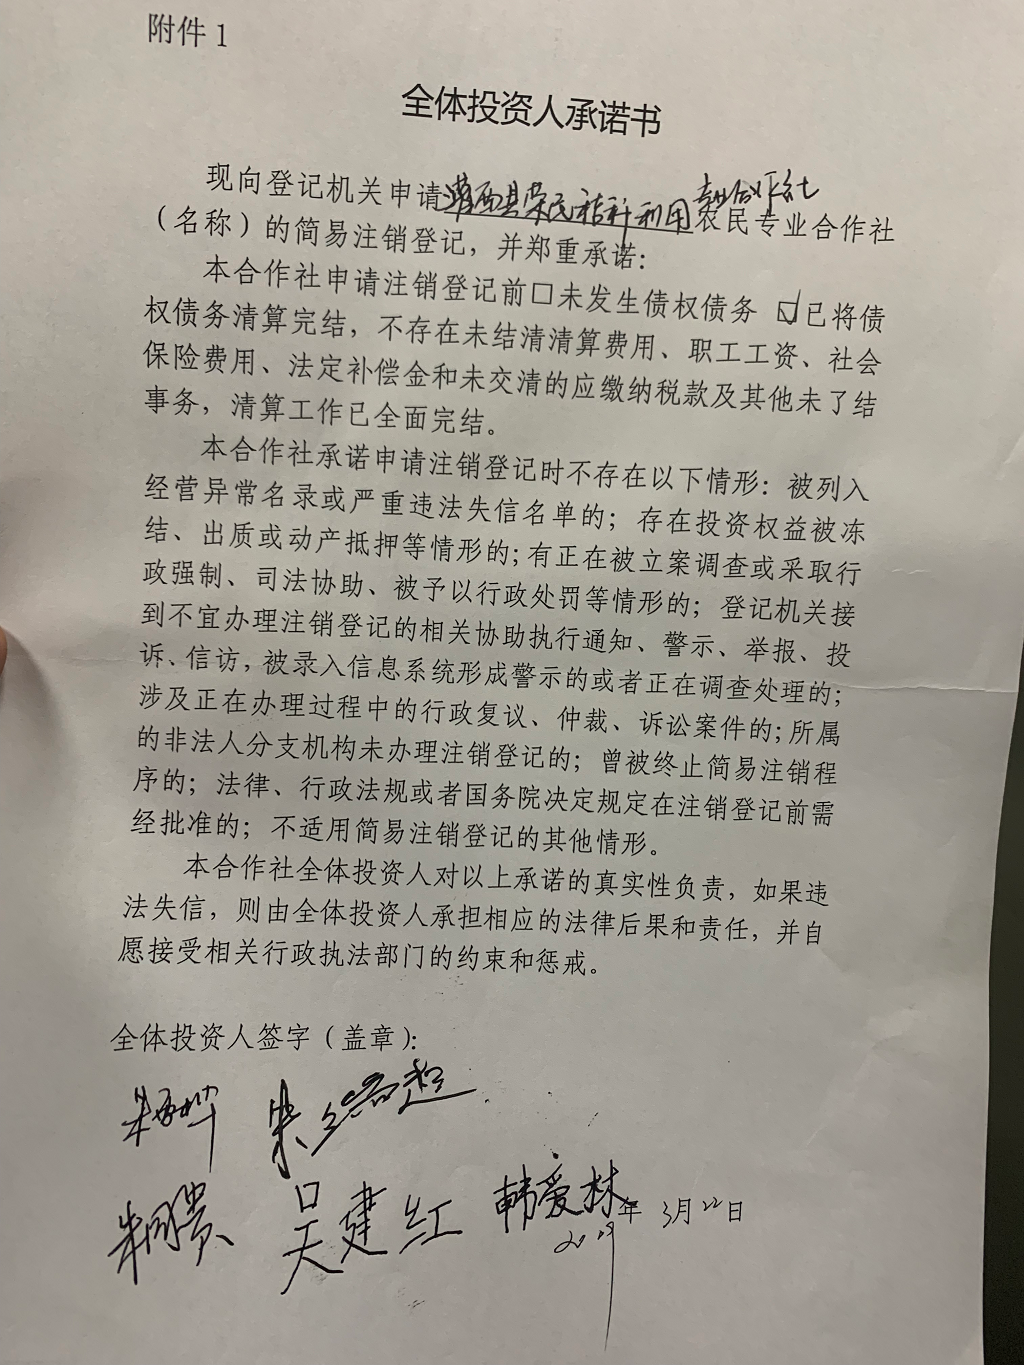 附件1
全体投资人承诺书
专业合作社
现向登记机关申请灌南县荣民秸秆利用农民专业合作社
（名称）的简易注销登记，并郑重承诺：
本合作社申请注销登记前□未发生债权债务 ☑已将债
权债务清算完结，不存在未结清清算费用、职工工资、社会
保险费用、法定补偿金和未交清的应缴纳税款及其他未了结
事务，清算工作已全面完结。
本合作社承诺申请注销登记时不存在以下情形：被列入
经营异常名录或严重违法失信名单的；存在投资权益被冻
结、出质或动产抵押等情形的；有正在被立案调查或采取行
政强制、司法协助、被予以行政处罚等情形的；登记机关接
到不宜办理注销登记的相关协助执行通知、警示、举报、投
诉、信访，被录入信息系统形成警示的或者正在调查处理的；
涉及正在办理过程中的行政复议、仲裁、诉讼案件的；所属
的非法人分支机构未办理注销登记的；曾被终止简易注销程
序的；法律、行政法规或者国务院决定规定在注销登记前需
经批准的；不适用简易注销登记的其他情形。
本合作社全体投资人对以上承诺的真实性负责，如果违
法失信，则由全体投资人承担相应的法律后果和责任，并自
愿接受相关行政执法部门的约束和惩戒。
全体投资人签字（盖章）：
吴建红 韩爱林
2019年 3月22日